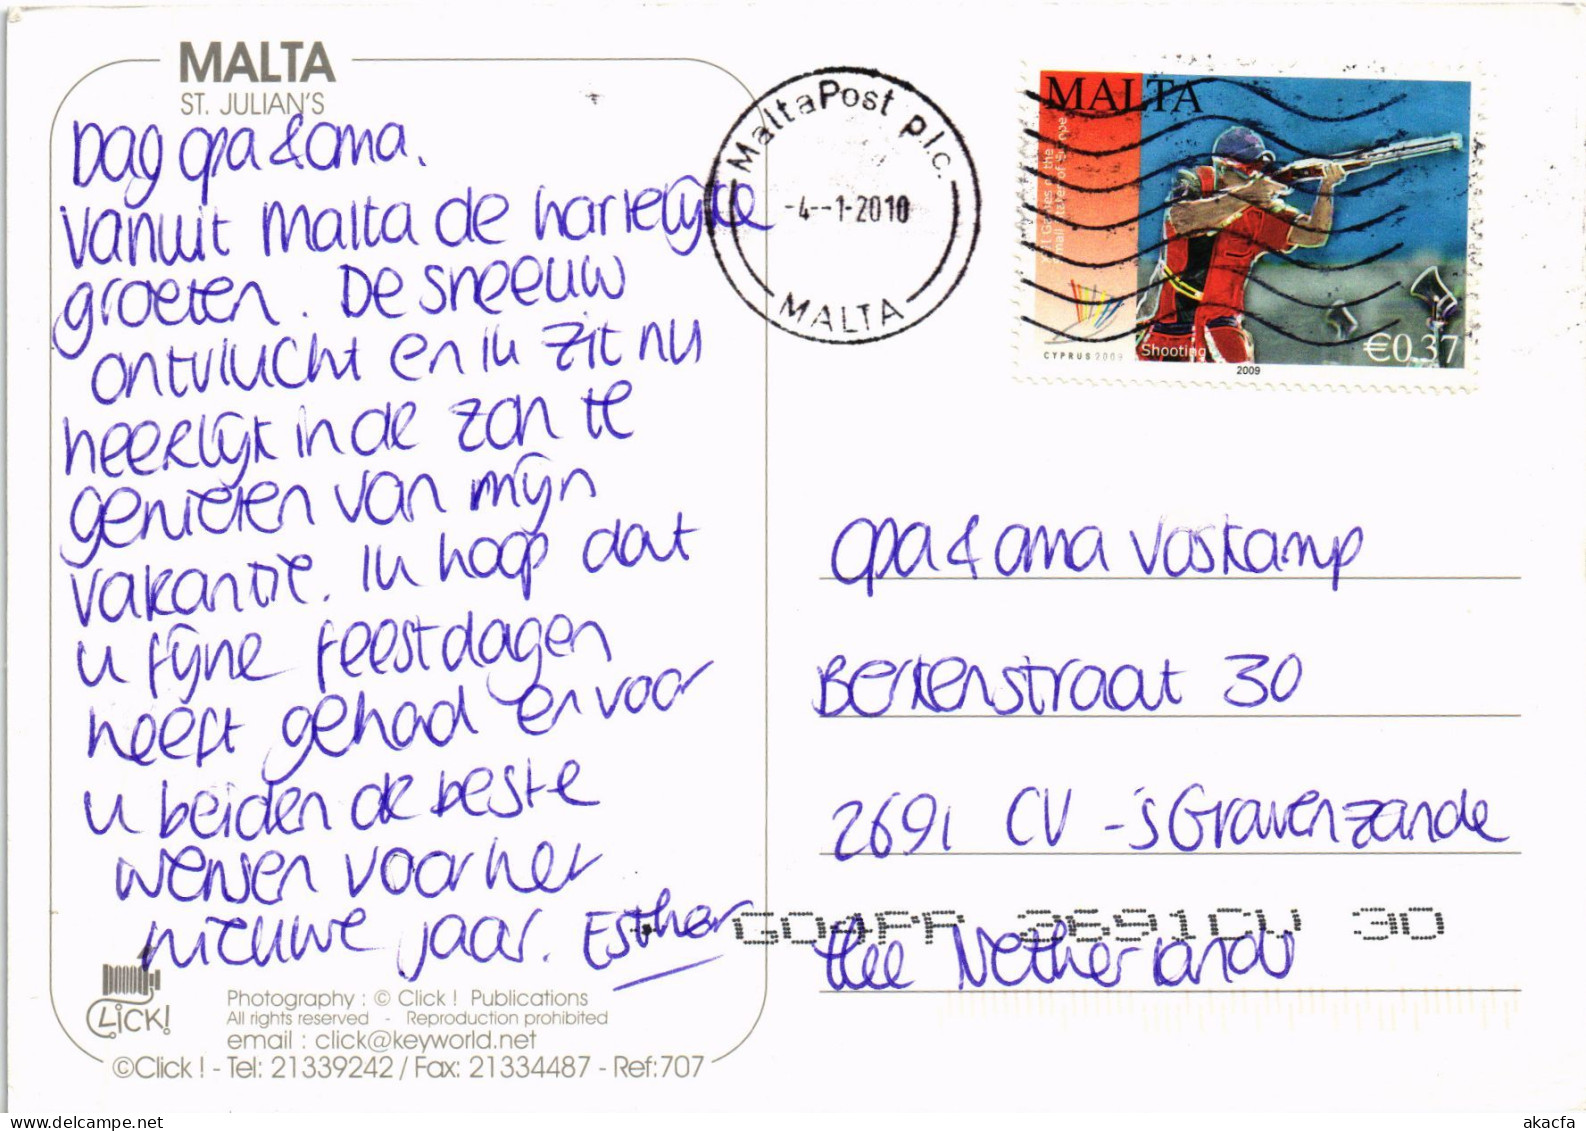 MALTA
ST. JULIAN'S
Dag opa & oma.
vanuit Malta de hartelijke
groeten. De sneeuw
ontvlucht en ik zit nu
heerlijk in de zon te
genieten van mijn
vakantie. Ik hoop dat
u fijne feestdagen
heeft gehad en voor
u beiden de beste
wensen voor het
nieuwe jaar. Esther
CLICK!
Photography : © Click ! Publications
All rights reserved - Reproduction prohibited
email : click@keyworld.net
©Click ! - Tel: 21339242 / Fax: 21334487 - Ref:707
MaltaPost p.l.c.
-4--1-2010
MALTA
MALTA
CYPRUS 2009
Shooting
€0.37
2009
opa & oma Voskamp
Berkenstraat 30
2691 CV -'s Gravenzande
30
the Netherlands
www.delcampe.net
akacfa